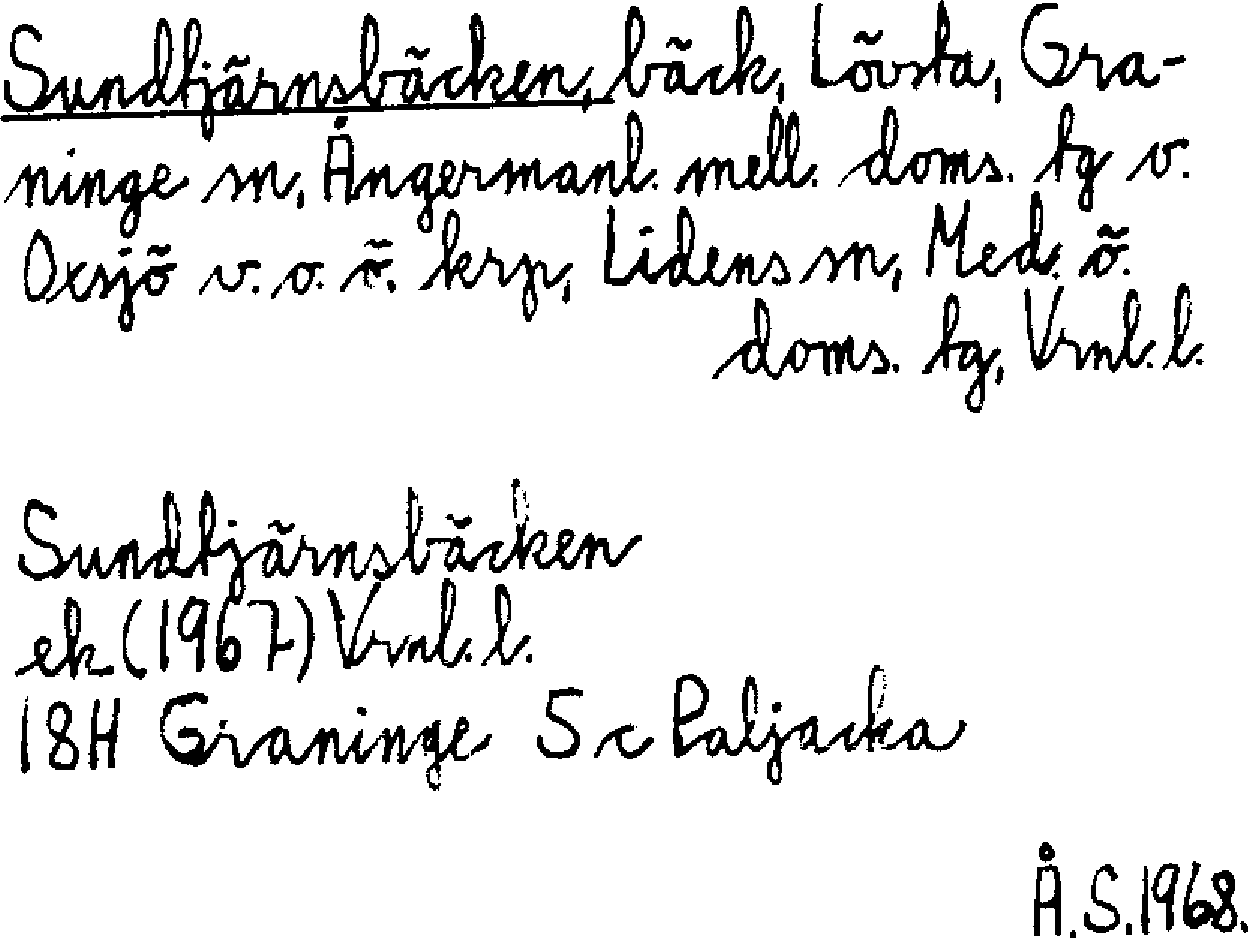 Sundtjärnsbäcken, bäck, Lövsta, Gra-
ninge sn, Ångermanl. mell. doms. tg v.
Oxsjö v. o. ö. krp, Lidens sn, Med. ö.
doms. tg, Vrnl. l.
Sundtjärnsbäcken
ek (1967) Vrnl. l.
18H Graninge 5 c Paljacka
Å.S.1968.